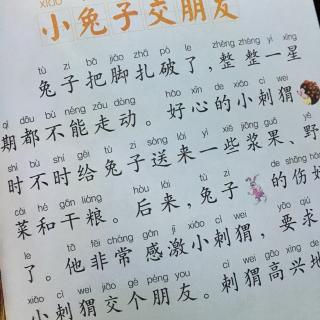 xiǎo
小兔子交朋友
tù zi bǎ jiǎo zhā pò le zhěng zhěng yì xīng
兔子把脚扎破了，整整一星
qī dōu bù néng zǒu dòng hǎo xīn de xiǎo cì wei
期都不能走动。好心的小刺猬
shí bù shí gěi tù zi sòng lái yì xiē jiāng guǒ yě
时不时给兔子送来一些浆果、野
cài hé gān liáng hòu lái tù zi de shāng hǎo
菜和干粮。后来，兔子的伤好
le tā fēi cháng gǎn jī xiǎo cì wei yāo qiú
了。他非常感激小刺猬，要求
xiǎo cì wei jiāo gè péng you cì wei gāo xìng de
小刺猬交个朋友。刺猬高兴地